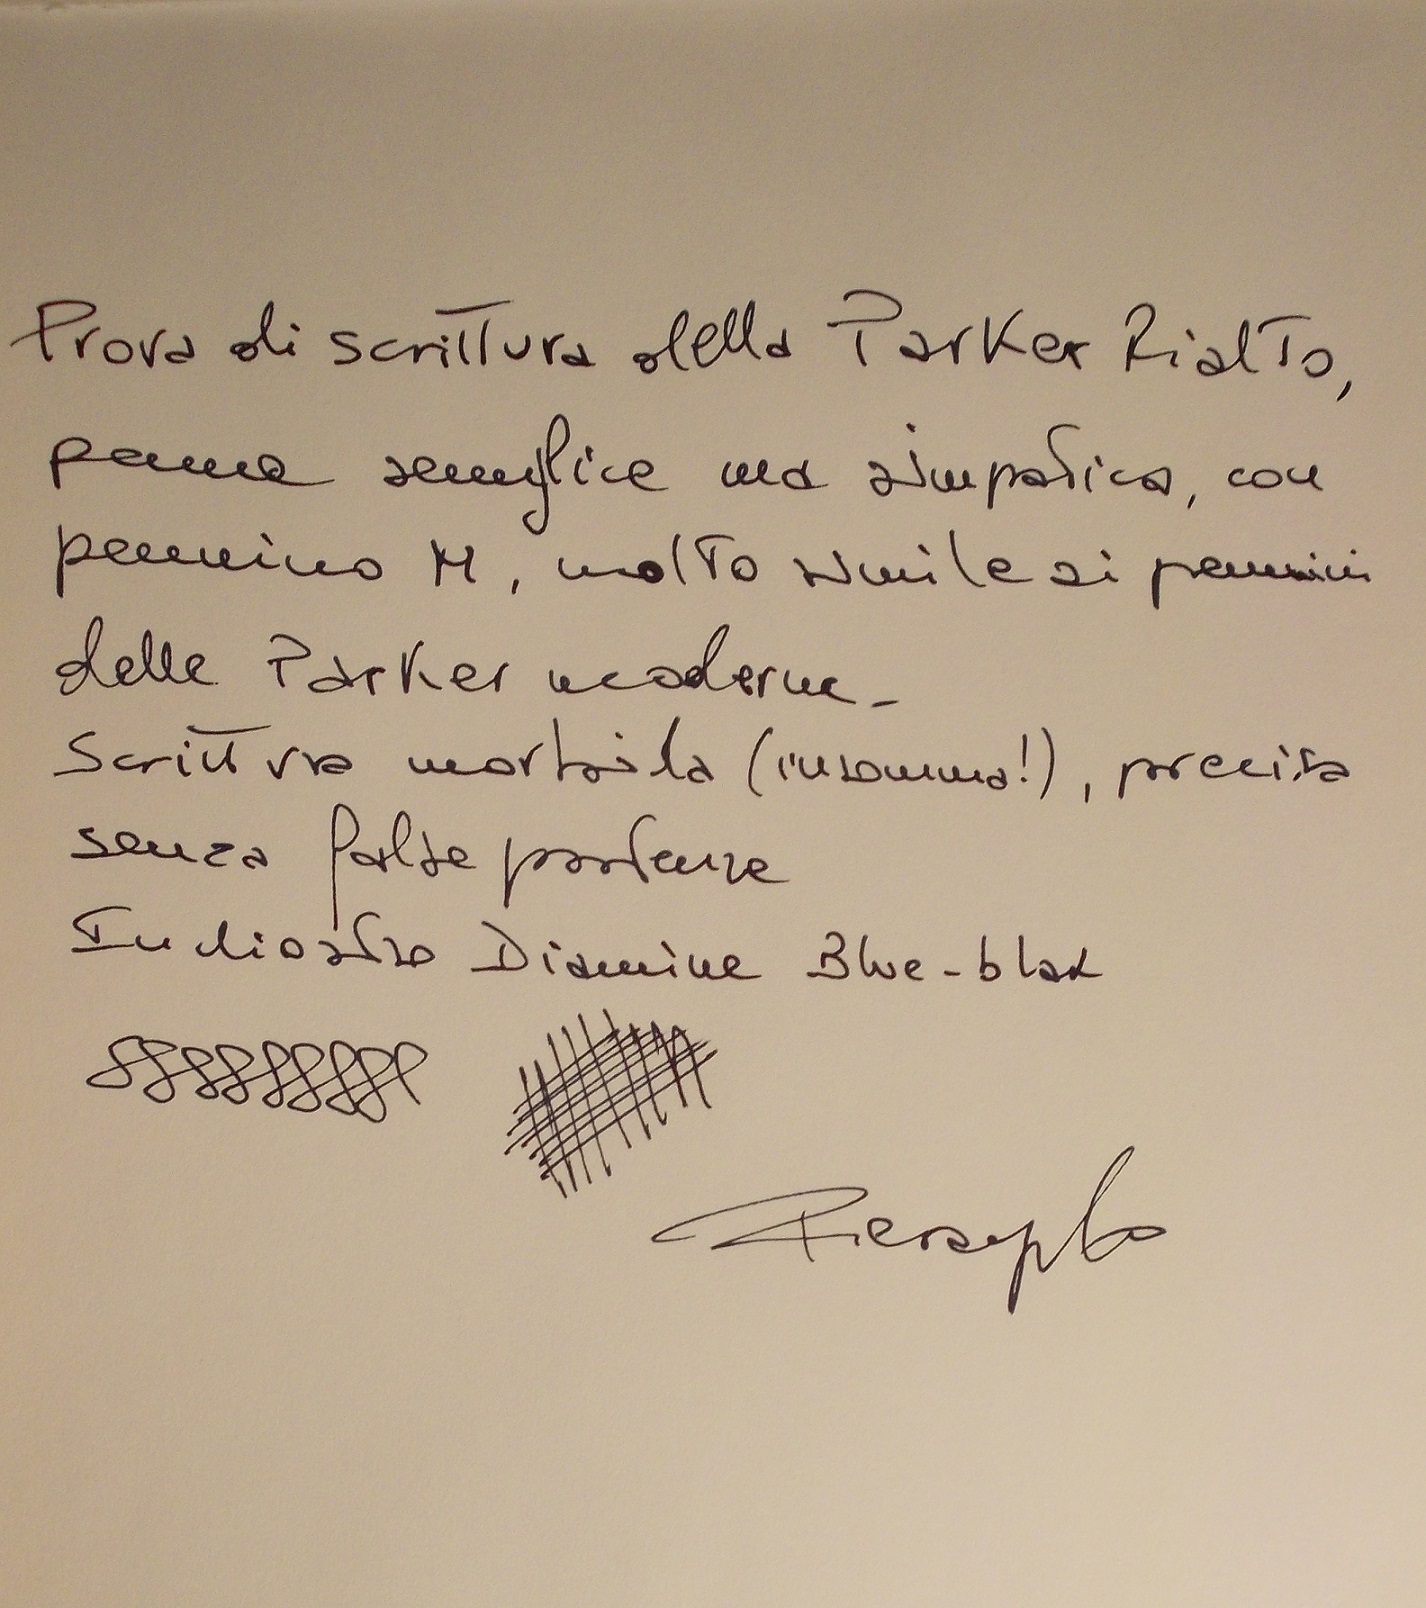 Prova di scrittura della Parker Rialto,
penna semplice ma simpatica, con
pennino M, molto simile ai pennini
delle Parker moderne_
Scrittura morbida (insomma!), precisa
senza false partenze
Inchiostro Diamine Blue-blak